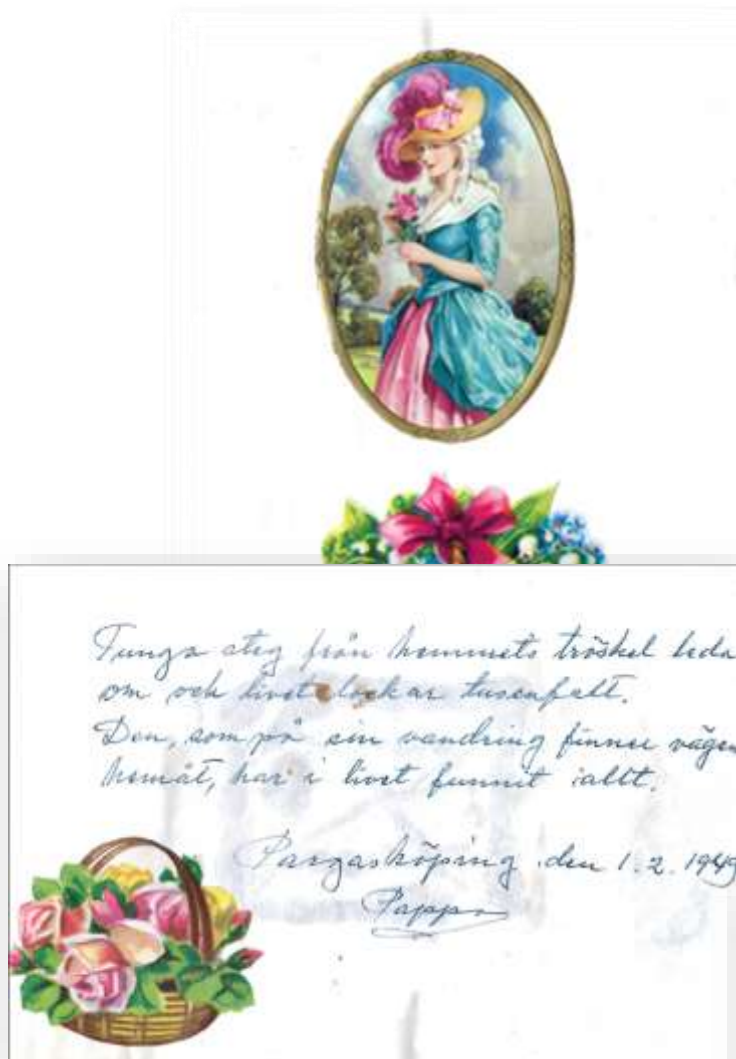 Tunga steg från hemmets tröskel leda
om och livet lockar tusenfalt.
Den, som på sin vandring finner vägen
hemåt, har i livet funnit allt.
Pargasköping den 1.2.1949
Pappa